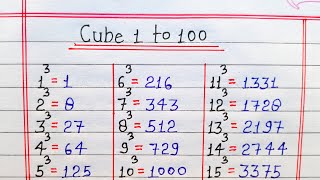 Cube 1 to 100
1³ = 1
2³ = 8
3³ = 27
4³ = 64
5³ = 125
6³ = 216
7³ = 343
8³ = 512
9³ = 729
10³ = 1000
11³ = 1331
12³ = 1728
13³ = 2197
14³ = 2744
15³ = 3375